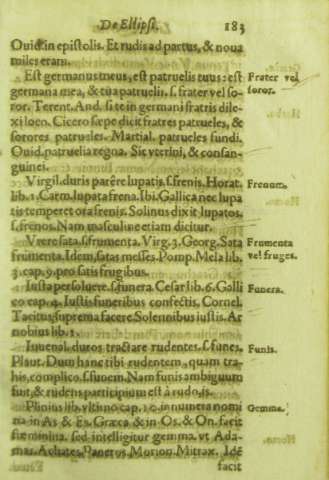 De Ellipsi. 183
Ouid. in epistolis. Et rudis ad partus, & noua
miles eram.
Est germanus meus, est patruelis tuus: est Frater vel
germana mea, & tua patruelis. s. frater vel so- soror.
ror. Terent. And. si te in germani fratris dile-
xi loco. Cicero sæpe dicit fratres patrueles, &
sorores patrueles. Martial. patrueles fundi.
Ouid. patruelia regna. Sic vterini, & consan-
guinei.
Virgil. duris parêre lupatis. s. frenis. Horat. Frenum.
lib. 1. Carm. lupata frena. Ibi. Gallica nec lupa
tis temperet ora frenis. Solinus dixit lupatos.
s. frenos. Nam masculine etiam dicitur.
Vrere sata. s. frumenta. Virg. 3. Georg. Sata Frumenta
frumenta. Idem, satas messes. Pomp. Mela lib. vel fruges.
3. cap. 9. pro satis frugibus.
Iusta persoluere. s. funera. Cesar lib. 6. Galli Funera.
co cap. 4. Iustis funeribus confectis. Cornel.
Tacitus, suprema facere. Solennibus iustis. Ar
nobius lib. 1.
Iuuenal. duros tractare rudentes. s. funes. Funis.
Plaut. Dum hanc tibi rudentem, quam tra-
his, complico. s. funem. Nam funis ambiguum
fuit, & rudens participium est à rudo, is.
Plinius lib. vltimo cap. 10. innumera nomi Gemma.
na in As & Es. Græca & in Os, & On. facit
fœminina. sed intelligitur gemma. vt Ada-
mas. Achates. Paneros Morion. Mitrax. Idē
facit